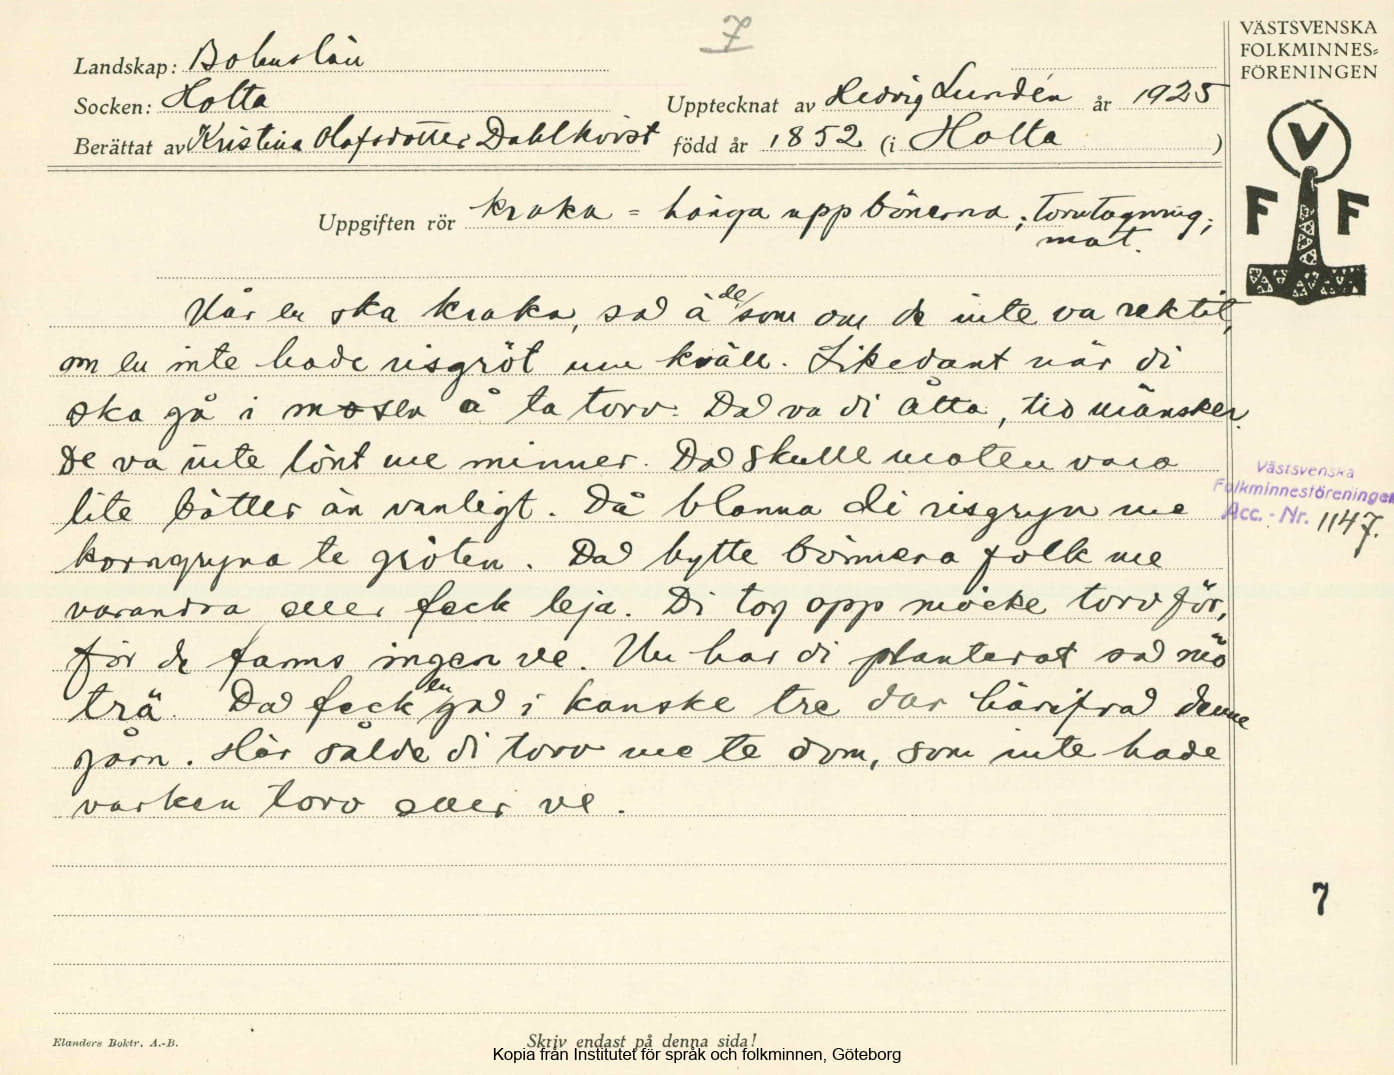 7
VÄSTSVENSKA
FOLKMINNES=
FÖRENINGEN
V
F F
Landskap: Bohuslän
Socken: Holta
Upptecknat av Hedvig Lundén år 1925
Berättat av Kristina Olofsdotter Dahlkvist född år 1852 (i Holta )
Uppgiften rör kraka = hänga upp bönerna; torvtagning;
mat.
När en ska kraka, så ä de som om de inte va rektit,
om en inte hade risgröt um kväll. Likedant när di
ska gå i mosen å ta torv. Då va di åtta, tio mänsker.
De va inte lönt me minner. Då skulle maten vara
lite bätter än vanligt. Då blanna di risgryn me
korngryna te gröten. Då bytte bönnera folk me
varandra eller feck leja. Di tog opp möcke torv för,
för de fanns ingen ve. Nu har di planterat så mö
trä. Då feck en gå i kanske tre dar härifrå denne
gårn. Här sålde di torv me te dom, som inte hade
varken torv eller ve.
Västsvenska
Folkminnesföreningen
Acc. - Nr. 1147.
7
Elanders Boktr. A.-B.
Skriv endast på denna sida!
Kopia från Institutet för språk och folkminnen, Göteborg